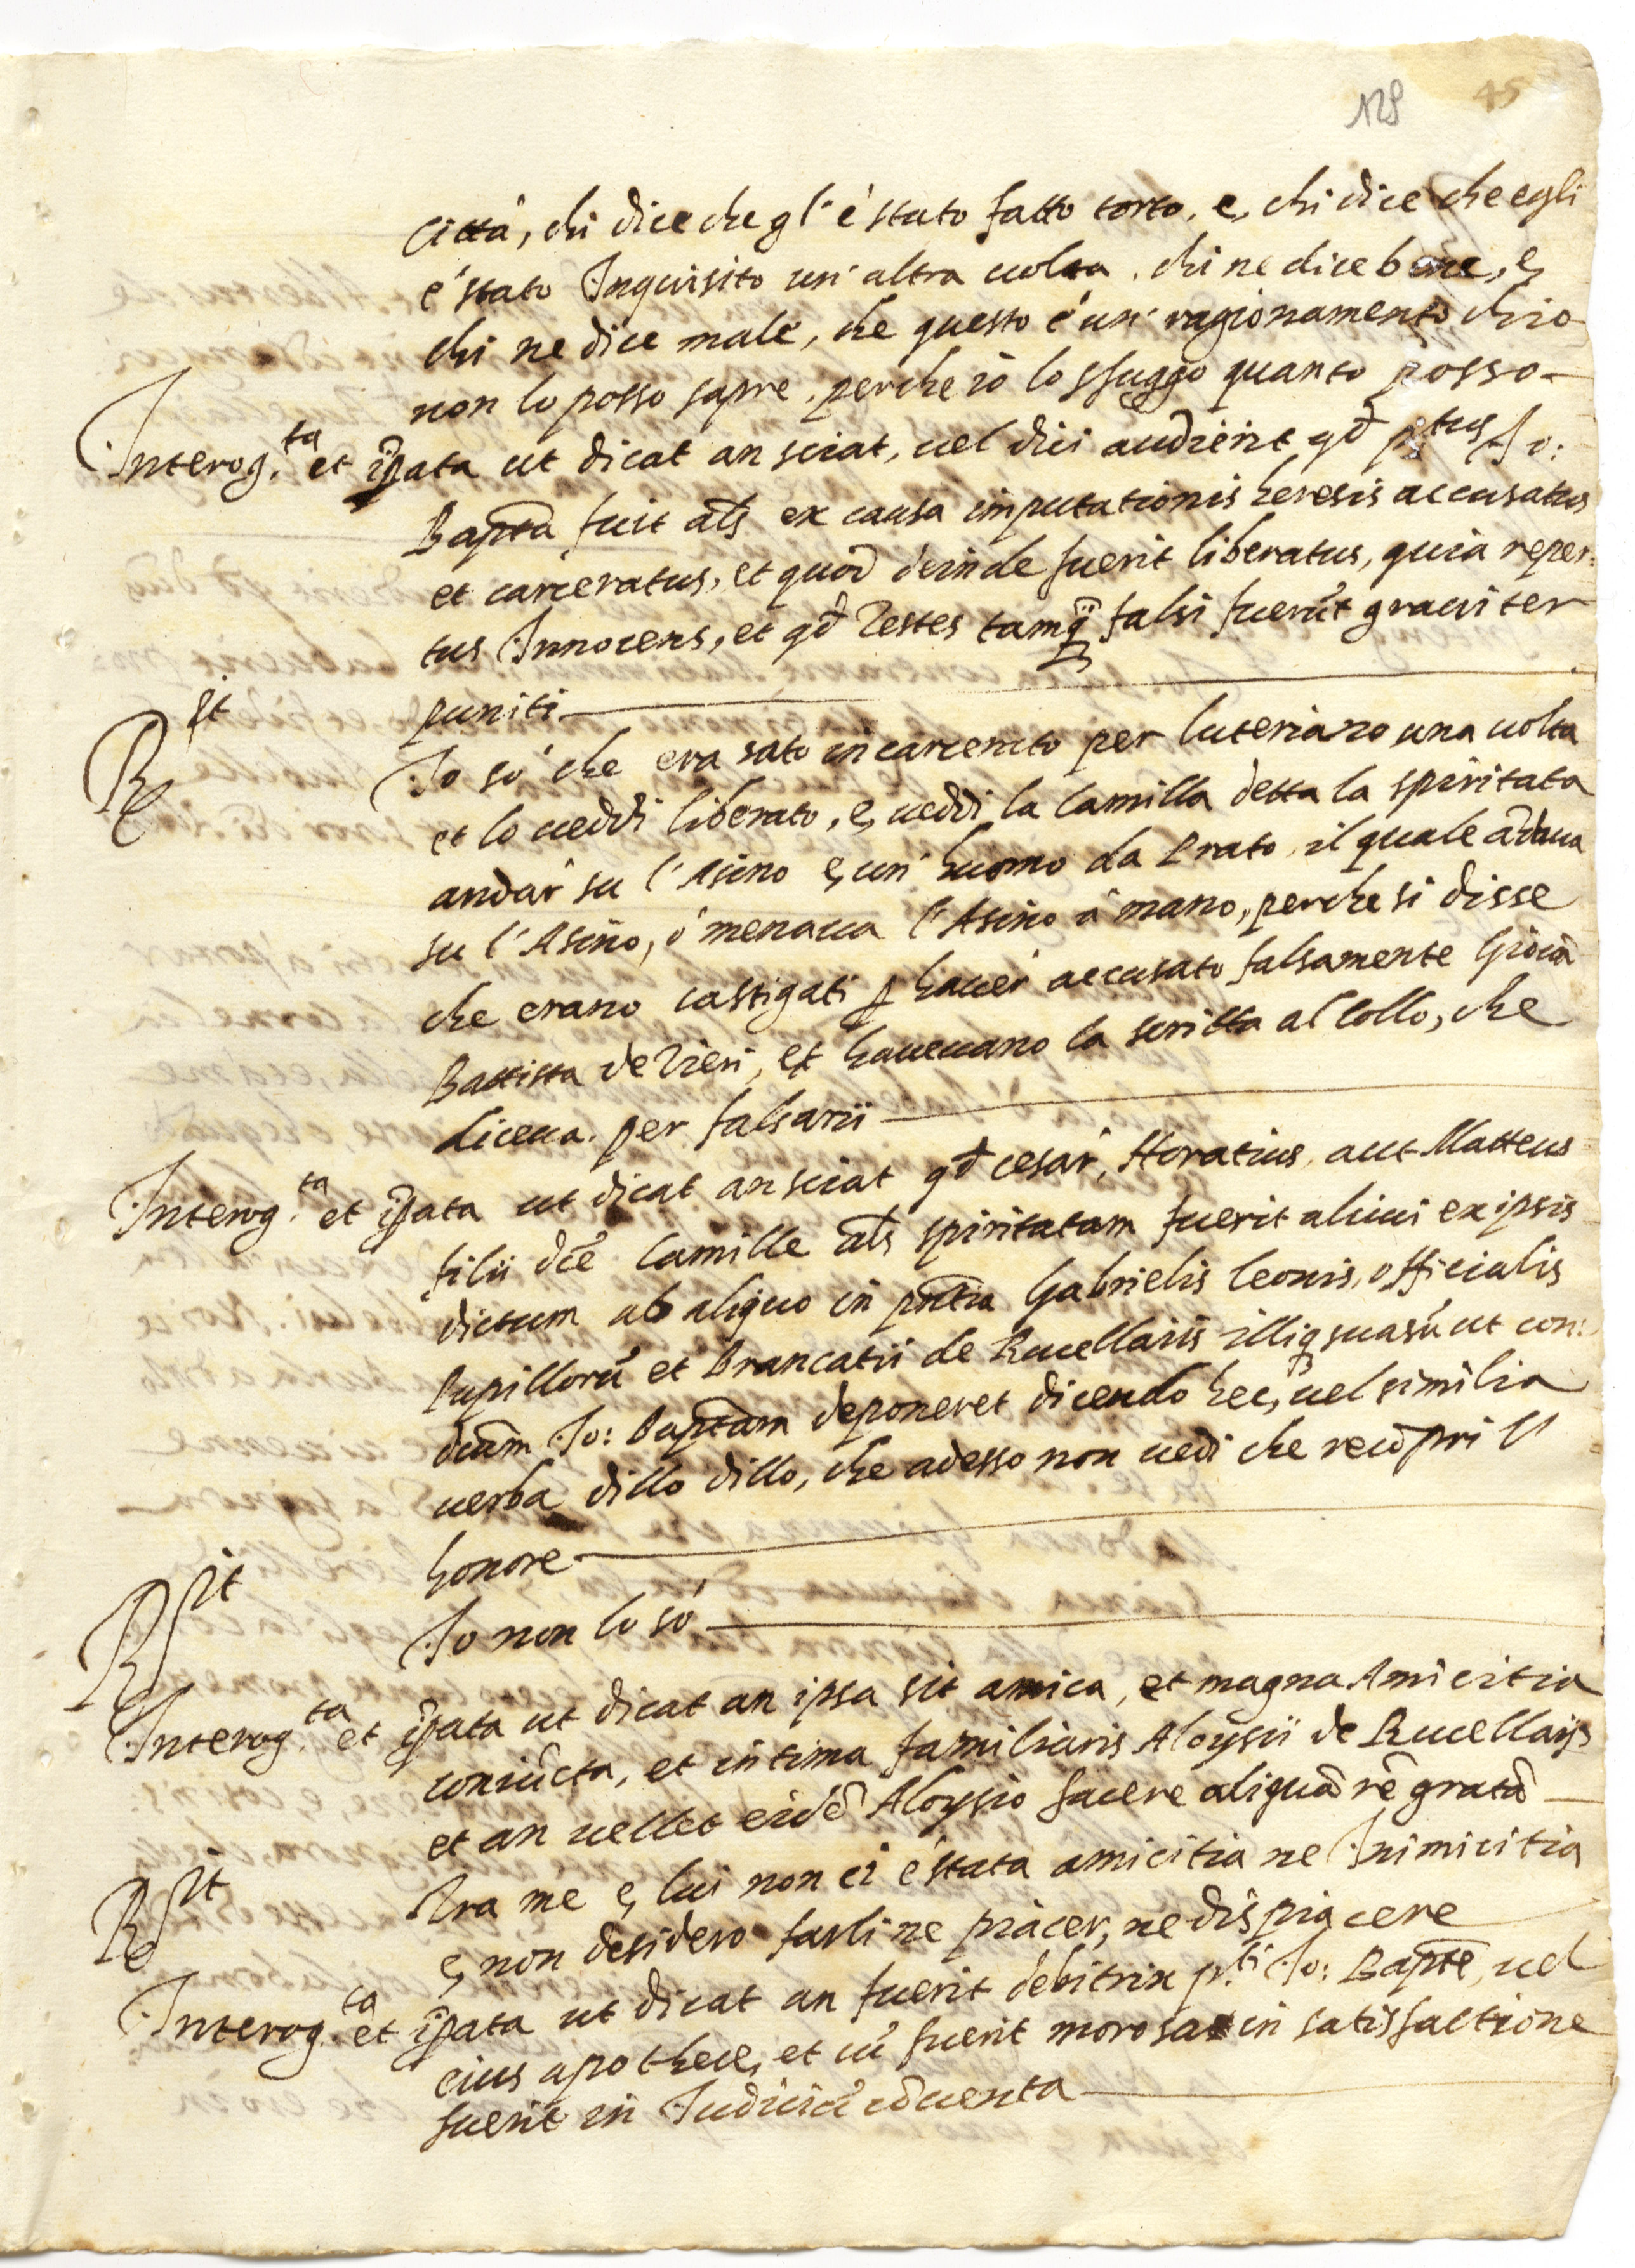 128 45
Città, chi dice che gl'è stato fatto torto, e, chi dice che egli
è stato Inquisito un'altra uolta, chi ne dice bene, e
chi ne dice male, che questo è un' ragionamento ch'io
non lo posso sapre, perche io lo sfuggo quanto posso
Interog.ta et ipata ut dicat an sciat, uel dici audierit qd ptus Jo:
Bapta fuit als ex causa imputationis heresis accusatus
et carceratus, et quod deinde fuerit liberatus, quia reper:
tus Innocens, et qd Testes tamq falsi fuerūt grauiter
puniti
Rit Io sò che era sato incarcerato per luteriano una uolta
et lo ueddi liberato, e, ueddi la Camilla detta la spiritata
andar su l'Asino e, un' huomo da Prato, il quale adaua
su l'Asino, ò menaua l'Asino à mano, perche si disse
che erano castigati p hauer accusato falsamente Gioua
Battista de Vieri, et haueuano la scritta al Collo, che
diceua. per falsarii
Interog.ta et ipata ut dicat an sciat qd Cesar, Horatius, aut Matteus
filii dce Camille als spiritatam fuerit alicui ex ipsis
dictum ab aliquo in pntia Gabrielis Leonis, officialis
Pupillorū et Brancatii de Rucellariis illiq suasū ut con:
dictam Jo: Baptam deponeret dicendo hec, uel similia
uerba dillo dillo, che adesso non uedi che recōpri l'
honore
Rit Io non lo sò
Interog.ta et ipata ut dicat an ipsa sit amica, et magna Amicitia
coniūcta, et intima familiaris Aloysii de Rucellays
et an uellet eidē Aloysio facere aliquā rē gratā
Rit Tra me e, lui non ci è stata amicitia ne Inimicitia
e, non desidero farli ne piacer, ne dispiacere
Interog.ta et ipata ut dicat an fuerit debitrix p.ti Jo: Bapte, uel
eius apothece, et cū fuerit morosa in satisfactione
fuerit in Iudiciū cōuenta